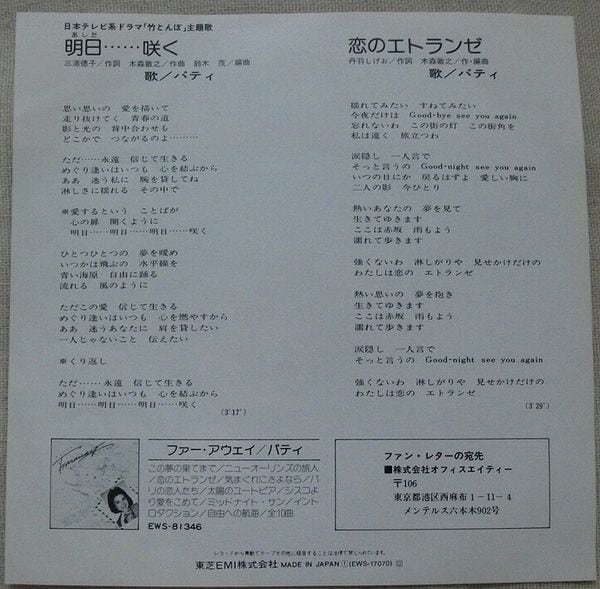 日本テレビ系ドラマ「竹とんぼ」主題歌
あした
明日……咲く
三浦徳子／作詞 木森敏之／作曲 鈴木 茂／編曲
歌／パティ
思い思いの 愛を描いて
走り抜けてく 青春の道
影と光の 背中合わせも
どこかで つながるのよ………
ただ……永遠 信じて生きる
めぐり逢いはいつも 心を結ぶから
ああ 迷う私に 腕を貸してね
淋しさに揺れる その中で
※愛するという ことばが
心の扉 開くように
明日……明日……明日……咲く
ひとつひとつの 夢を暖め
いつかは飛ぶの 水平線を
青い海原 自由に踊る
流れる 風のように
ただこの愛 信じて生きる
めぐり逢いはいつも 心を燃やすから
ああ 迷うあなたに 肩を貸したい
一人じゃないこと 伝えたい
※くり返し
ただ……永遠 信じて生きる
めぐり逢いはいつも 心を結ぶから
明日……明日……明日……咲く
(3′17″)
恋のエトランゼ
丹羽しげお／作詞 木森敏之／作・編曲
歌／パティ
揺れてみたい すねてみたい
今夜だけは Good-bye see you again
忘れないわ この街の灯 この街角を
私は遠く 旅立つわ
涙隠し 一人言で
そっと言うの Good-night see you again
いつの日にか 戻るはずよ 愛しい胸に
二人の影 今ひとり
熱いあなたの 夢を見て
生きてゆきます
ここは赤坂 雨もよう
濡れて歩きます
強くないわ 淋しがりや 見せかけだけの
わたしは恋の エトランゼ
熱い思いの 夢を抱き
生きてゆきます
ここは赤坂 雨もよう
濡れて歩きます
涙隠し 一人言で
そっと言うの Good-night see you again
強くないわ 淋しがりや 見せかけだけの
わたしは恋の エトランゼ
(3′29″)
ファー・アウェイ／パティ
この夢の果てまで／ニューオーリンズの旅人
／恋のエトランゼ／気まぐれにさよなら／パ
リの恋人たち／太陽のユートピア／シスコよ
り愛をこめて／ミッドナイト・サン／イント
ロダクション／自由への航海／全10曲
EWS-81346
ファン・レターの宛先
■株式会社オフィスエイティー
〒106
東京都港区西麻布1-11-4
メンテルス六本木902号
レコードから無断でテープその他に録音することは法律で禁じられています。
東芝EMI株式会社 MADE IN JAPAN ① (EWS-17070) ②